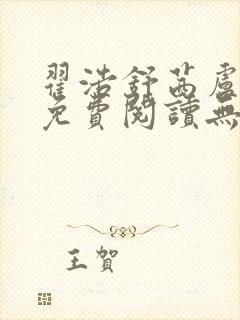 翟浩舒茜盧
免費閱讀無
王賀